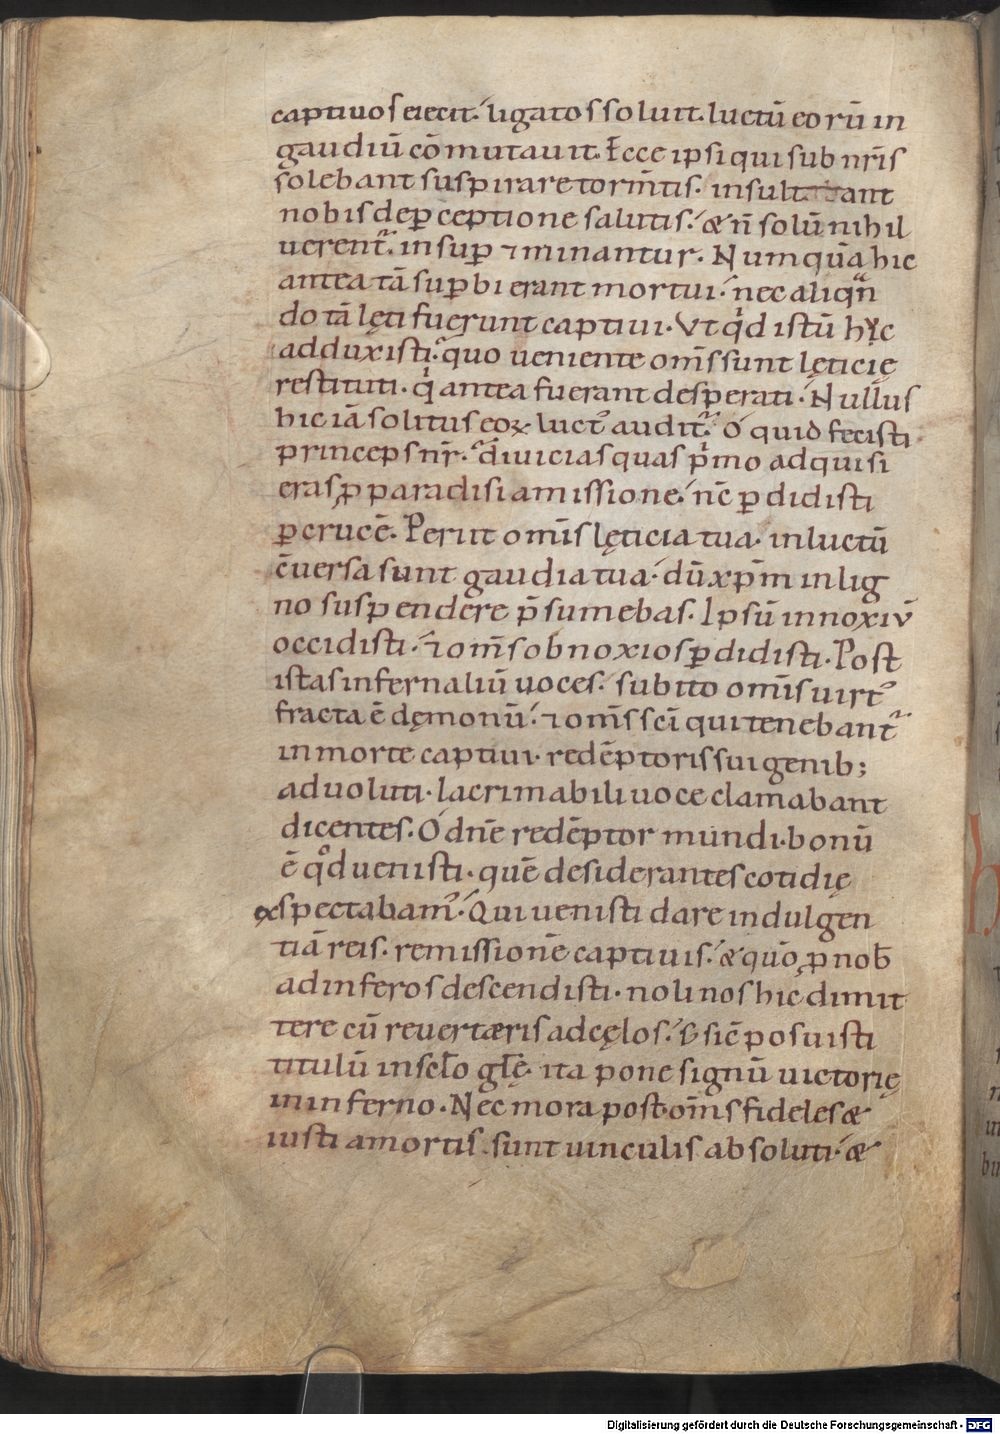 captiuos eiecit. ligatos soluit. luctū eorū in
gaudiū cōmutauit. Ecce ipsi qui sub nr̄is
solebant suspirare torm̄tis. insultabant
nobis de ꝑceptione salutis. & n̄ solū nihil
uerent᷑. insuꝑ ⁊ minantur. Numquā hic
antea tā suꝑbi erant mortui. nec aliqn̄
do tā lęti fuerunt captiui. Vt qd istū hyc
adduxisti. quo ueniente om̄s sunt lęticię
restituti. qi antea fuerant desperati. Nullus
hic iā solitus eoꝝ luct᷒ audit᷑. O quid fecisti
princeps nr̄. diuicias quas pⁱmo adquisi
eras ꝑ paradisi amissione. nc̄ ꝑdidisti
ꝑ crucē. Periit om̄is lęticia tua. in luctū
c̄uersa sunt gaudia tua. dū xp̄m in lig
no suspendere p̄sumebas. Ipsū innoxiū
occidisti. ⁊ om̄s obnoxios ꝑdidisti. Post
istas infernaliū uoces. subito om̄is uirt᷒
fracta ē dęmonū. ⁊ om̄s sc̄i qui tenebant᷑
in morte captiui. redēptoris sui genib;
aduoluti. lacrimabili uoce clamabant
dicentes. O dn̄e redēptor mundi. bonū
ē qd uenisti. quē desiderantes cotidię
exspectabam᷒. Qui uenisti dare indulgen
tiā reis. remissionē captiuis. & quō ꝓ nob̄
ad inferos descendisti. noli nos hic dimit
tere cū reuertæris ad cęlos. S; sic̄ posuisti
titulū in sclo̅ gl̄ę. ita pone signū uictorię
in inferno. Nec mora post om̄s fideles &
iusti a mortis. sunt uinculis absoluti. &
Digitalisierung gefördert durch die Deutsche Forschungsgemeinschaft - DFG